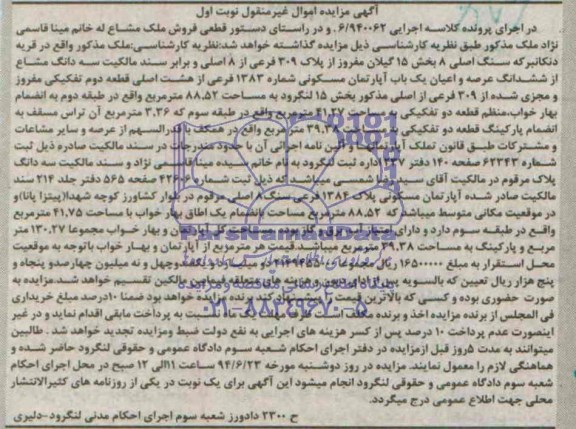 آگهی مزایده اموال غیرمنقول نوبت اول
در اجرای پرونده کلاسه اجرایی ۶/۹۴۰۰۶۲. و در راستای دستور قطعی فروش ملک مشاع له خانم مینا قاسمی
نژاد ملک مذکور طبق نظریه کارشناسی ذیل مزایده گذاشته خواهد شد:نظریه کارشناسی:ملک مذکور واقع در قریه
دنکانبرکه سنگ اصلی ۸ بخش ۱۵ گیلان مفروز از پلاک ۳۰۹ فرعی از ۸ اصلی و برابر سند مالکیت سه دانگ مشاع
از ششدانگ عرصه و اعیان یک باب آپارتمان مسکونی شماره ۱۳۸۳ فرعی از هشت اصلی قطعه دوم تفکیکی مفروز
و مجزی شده از ۳۰۹ فرعی از اصلی مذکور بخش ۱۵ لنگرود به مساحت ۸۸.۵۲ مترمربع واقع در طبقه دوم به انضمام
بهار خواب،منظم قطعه دو تفکیکی به مساحت ۴۱.۲۷ مترمربع واقع در طبقه سوم که ۳.۳۶ مترمربع آن تراس مسقف به
انضمام پارکینگ قطعه دو تفکیکی به مساحت ۳۹.۳۸ مترمربع واقع در همکف با قدرالسهم از عرصه و سایر مشاعات
و مشترکات طبق قانون تملک آپارتمانها و آئین نامه اجرائی آن با حدود مندرجات در سند مالکیت صادره ذیل ثبت
شماره ۶۲۳۴۳ صفحه ۱۴۰ دفتر ۴۳۷ اداره ثبت لنگرود به نام خانم سیده مینا قاسمی نژاد و سند مالکیت سه دانگ
پلاک مرقوم در مالکیت آقای سید رضا شمسی میباشد که ذیل ثبت شماره ۴۳۶۰۶ صفحه ۵۶۵ دفتر جلد ۲۱۴ سند
مالکیت صادر شده آپارتمان مسکونی پلاک ۱۳۸۴ فرعی سنگ ۸ اصلی مرقوم در بلوار کشاورز کوچه شهدا(پیتزا پانا)و
در موقعیت مکانی متوسط میباشد که ۸۸.۵۲ مترمربع مساحت بانضمام یک اطاق بهار خواب با مساحت ۴۱.۷۵ مترمربع
واقع در طبقه سوم دارد و دارای امتیاز آب برق و گاز بوده مساحت کل آپارتمان و بهار خواب مجموعا ۱۳۰.۲۷ متر
مربع و پارکینگ به مساحت ۳۹.۳۸ مترمربع میباشد.قیمت هر مترمربع از آپارتمان و بهار خواب باتوجه به موقعیت
محل استقرار به مبلغ ۱۶۵۰۰۰۰۰ ریال مجموعا دو میلیارد و یکصدوچهل و نه میلیون چهارصدو پنجاه و
پنج هزار ریال تعیین که بالسویه پس از مالکین تقسیم خواهد شد.مزایده به
صورت حضوری بوده و کسی که بالاترین قیمت را پیشنهاد کند برنده مزایده خواهد بود ضمنا ۱۰درصد مبلغ خریداری
فی المجلس از برنده مزایده اخذ و برنده مکلف است ظرف مهلت یک ماه نسبت به پرداخت مابقی اقدام نماید و در غیر
اینصورت عدم پرداخت ۱۰ درصد پس از کسر هزینه های اجرایی به نفع دولت ضبط ومزایده تجدید خواهد شد . طالبین
میتوانند به مدت ۵روز قبل ازمزایده در دفتر اجرای احکام شعبه سوم دادگاه عمومی و حقوقی لنگرود حاضر شده و
هماهنگی لازم را معمول نمایند. مزایده در روز دوشنبه مورخه ۹۴/۶/۲۳ ساعت ۱۱الی ۱۲ صبح در محل اجرای احکام
شعبه سوم دادگاه عمومی و حقوقی لنگرود انجام میشود این آگهی برای یک نوبت در یکی از روزنامه های کثیرالانتشار
محلی جهت اطلاع عمومی درج میگردد.
ح ۲۳۰۰ دادورز شعبه سوم اجرای احکام مدنی لنگرود-دلیری
ParsNamadData
۰۲۱-۸۸۳۴۹۶۷۰-۵